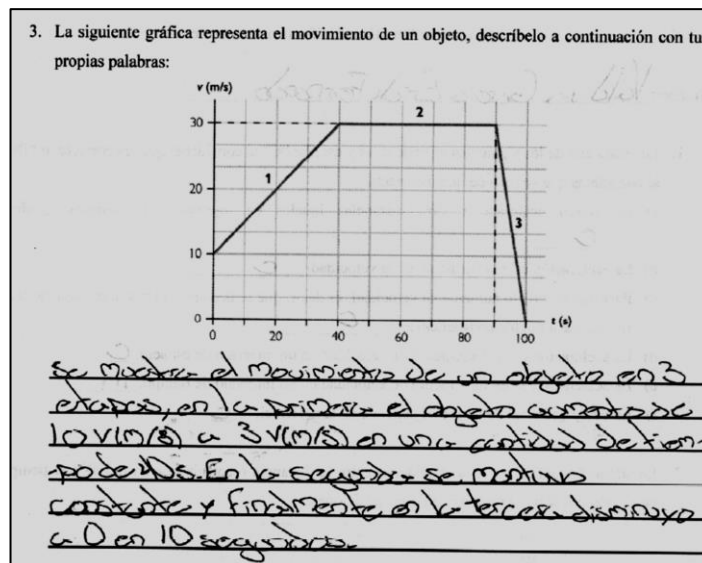 3. La siguiente gráfica representa el movimiento de un objeto, descríbelo a continuación con tu
propias palabras:
v (m/s)
30
20
10
0
1
2
3
0 20 40 60 80 100
t (s)
se muestra el movimiento de un objeto en 3
etapas, en la primera el objeto aumenta de
10 v(m/s) a 3 v(m/s) en una cantidad de tiem-
po de 40s. En la segunda se mantuvo
constante y finalmente en la tercera disminuyo
a 0 en 10 segundos.